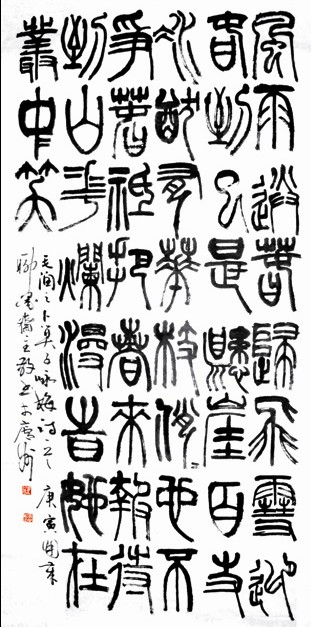 風雨送春歸飛雪迎
春到已是懸崖百丈
冰猶有華枝俏也不
爭春祇把春來報待
到山華爛漫時她在
叢中笑
毛潤之卜算子咏梅詩 庚寅
齋主敬書於廣州